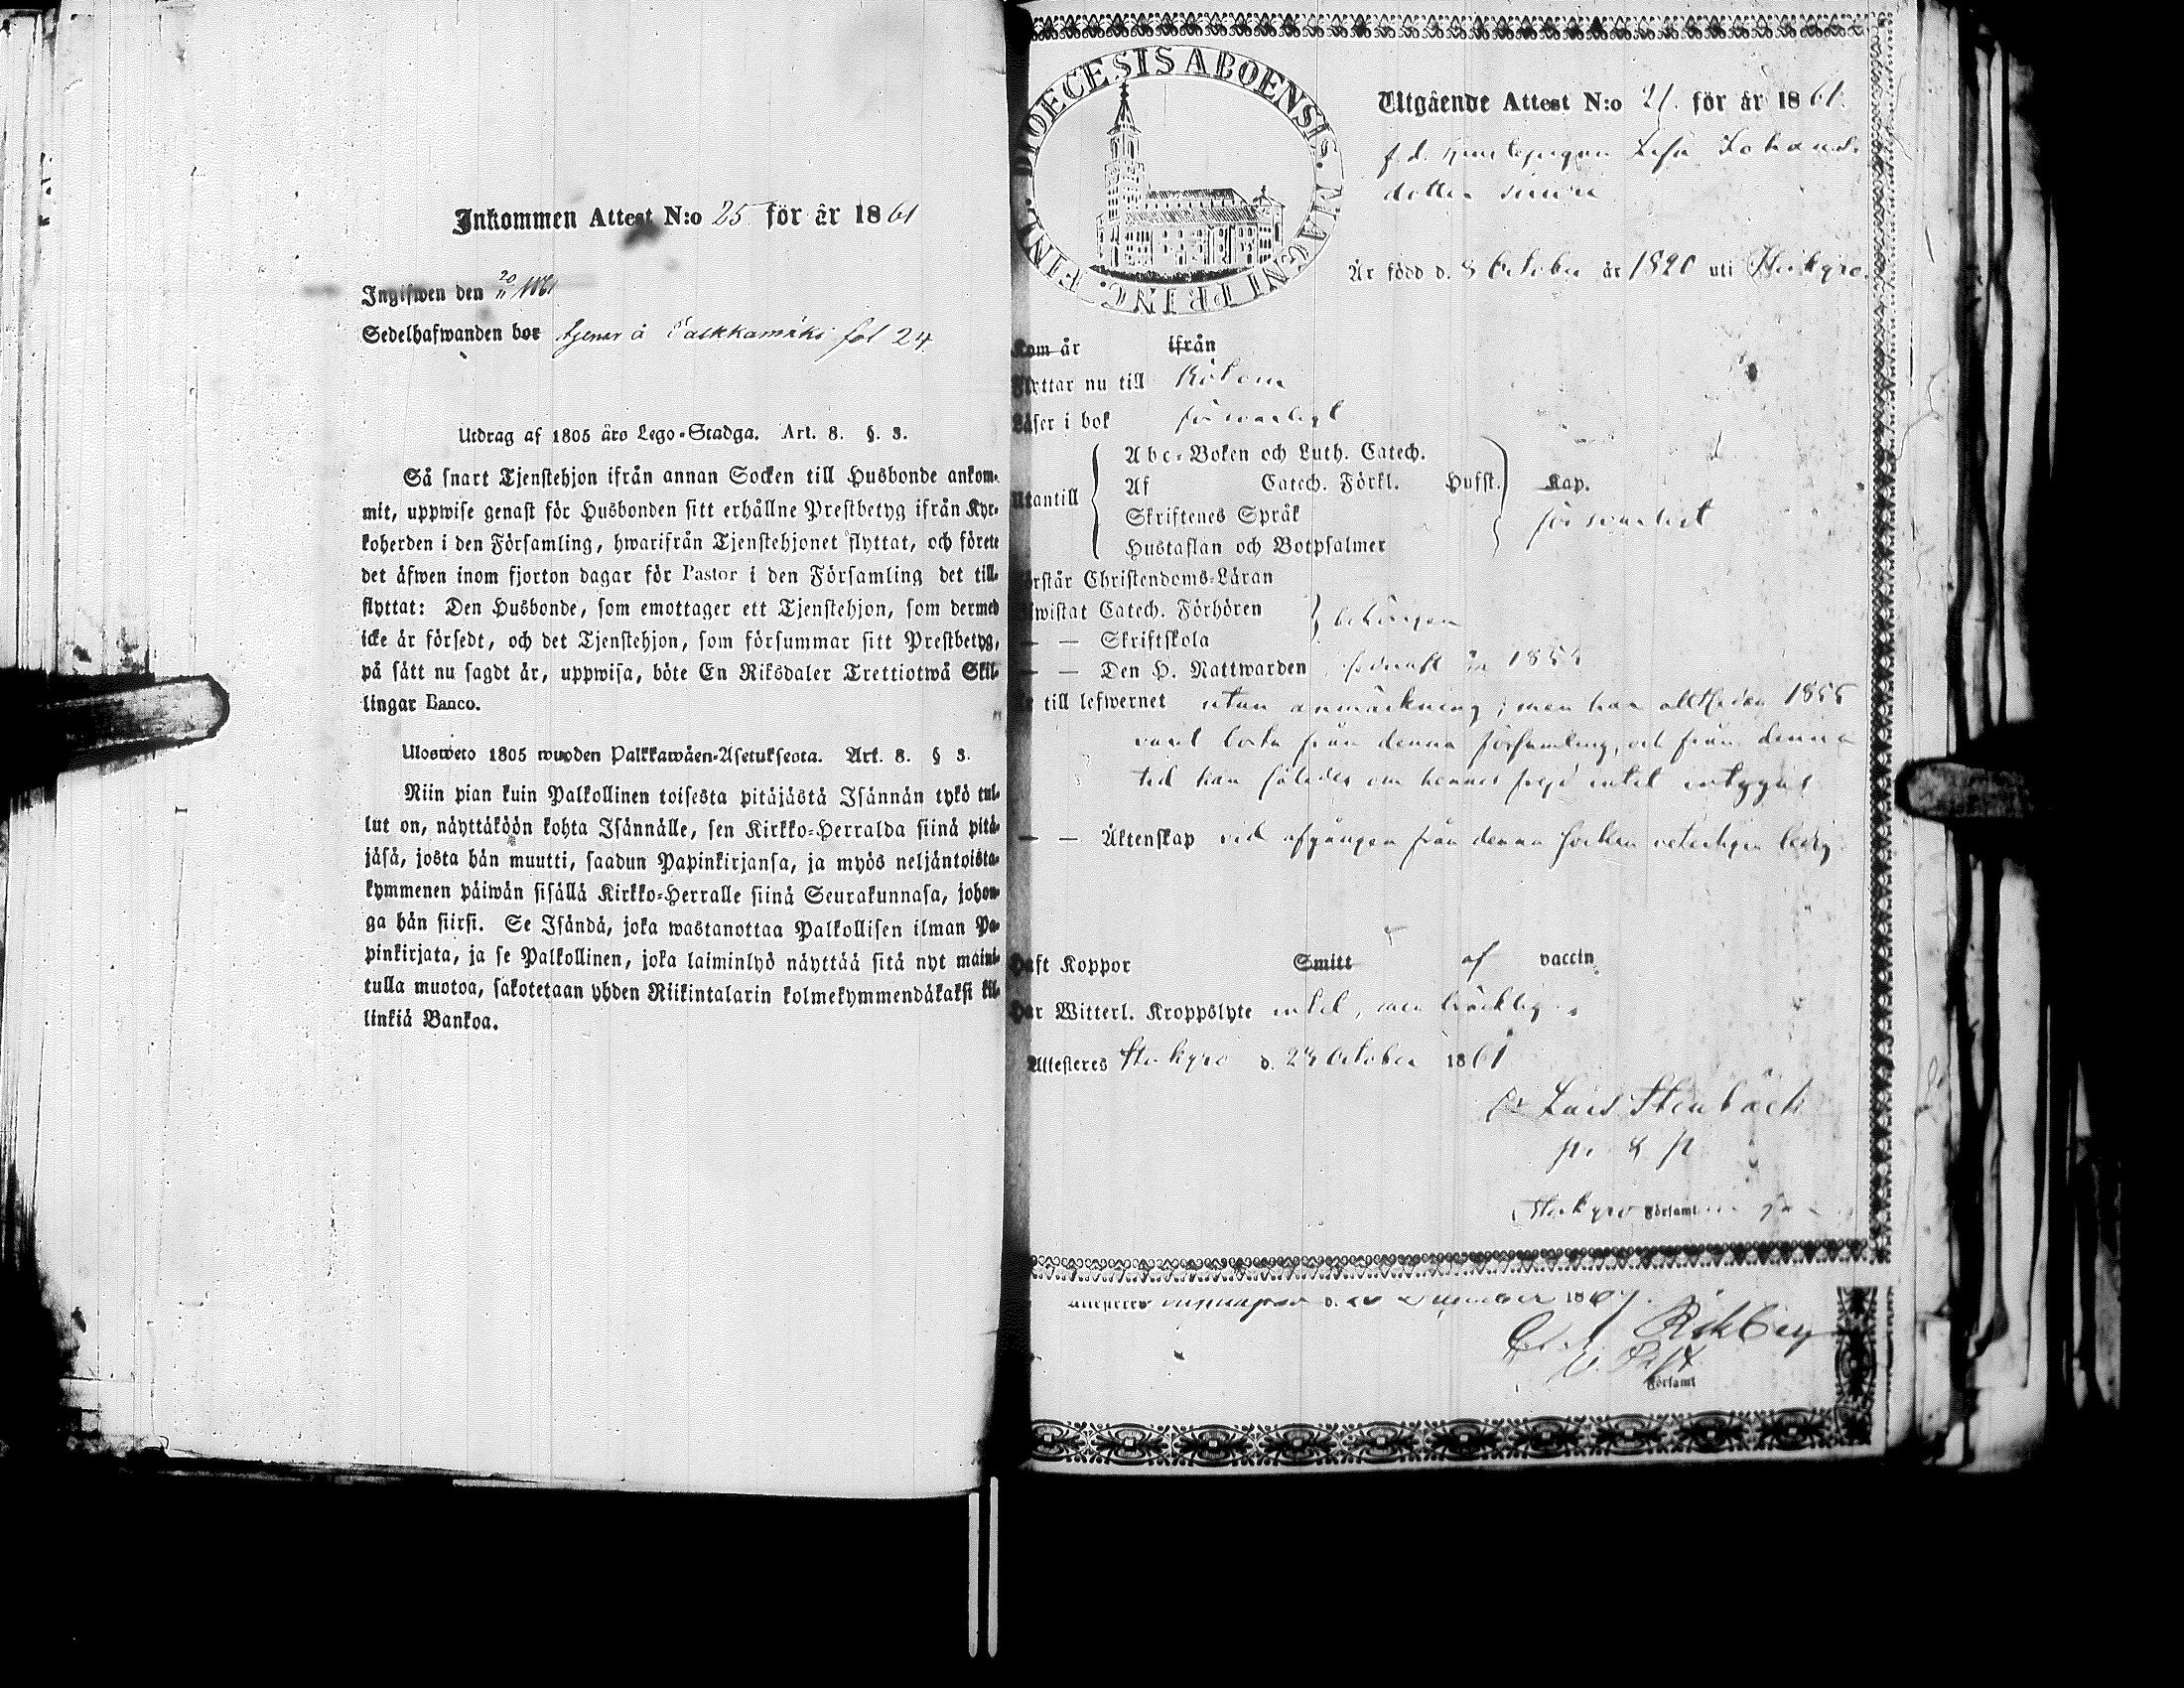 Inkommen Attest N:o 25 för år 1861
Ingifwen den 20/11 1861
Sedelhafwanden bor tjenar å Palkkamäki fol 24.
Utdrag af 1805 års Lego-Stadga. Art. 8. §. 3.
Så snart Tjenstehjon ifrån annan Socken till Husbonde ankom-
mit, uppwise genast för Husbonden sitt erhållne Prestbetyg ifrån Kyr-
koherden i den Församling, hwarifrån Tjenstehjonet flyttat, och förete
det äfwen inom fjorton dagar för Pastor i den Församling det till-
flyttat: Den Husbonde, som emottager ett Tjenstehjon, som dermed
icke är försedt, och det Tjenstehjon, som försummar sitt Prestbetyg,
på sätt nu sagdt är, uppwisa, böte En Riksdaler Trettiotwå Skil-
lingar Banco.
Ulosweto 1805 wuoden Palkkawäen-Asetuksesta. Art. 8. § 3.
Niin pian kuin Palkollinen toisesta pitäjästä Isännän tykö tul-
lut on, näyttäköön kohta Isännälle, sen Kirkko-Herralda siinä pitä-
jäsä, josta hän muutti, saadun Papinkirjansa, ja myös neljäntoista-
kymmenen päiwän sisällä Kirkko-Herralle siinä Seurakunnasa, johon-
ga hän siirsi. Se Isändä, joka wastanottaa Palkollisen ilman Pa-
pinkirjata, ja se Palkollinen, joka laiminlyö näyttää sitä nyt maini-
tulla muotoa, sakotetaan yhden Riikintalarin kolmekymmendäkaksi kil-
linkiä Bankoa.
DIOECESIS ABOENSIS. MAGNI PRINC. FINL.
Utgående Attest N:o 21. för år 1861.
f. d. Lisa Johans
dotter
Är född d. 8 October år 1820 uti Storkyro.
Kom år ifrån
Flyttar nu till
Läser i bok försvarligt
Utantill
Abc-Boken och Luth. Catech.
Af Catech. Förkl. Hufst. Kap.
Skriftenes Språk försvarligt
Hustaflan och Botpsalmer
Förstår Christendoms-Läran
Biwistat Catech. Förhören
— — Skriftskola behörigen
— — Den H. Nattwarden senast år 185
Är till lefwernet utan anmärkning; men har alltsedan 1855
varit borta från denna församling, och från denna
tid kan således om hennes frejd intet intygas
— — Äktenskap vid afgången från denna socken veterligen ledig
Haft Koppor Smitt af vaccin
Har Witterl. Kroppslyte intet, men bräcklig.
Attesteres Storkyro d. 23 October 1861
Lars Stenbäck
Storkyro Församl
Attesteres d. 1864.
v. Past.
Församl